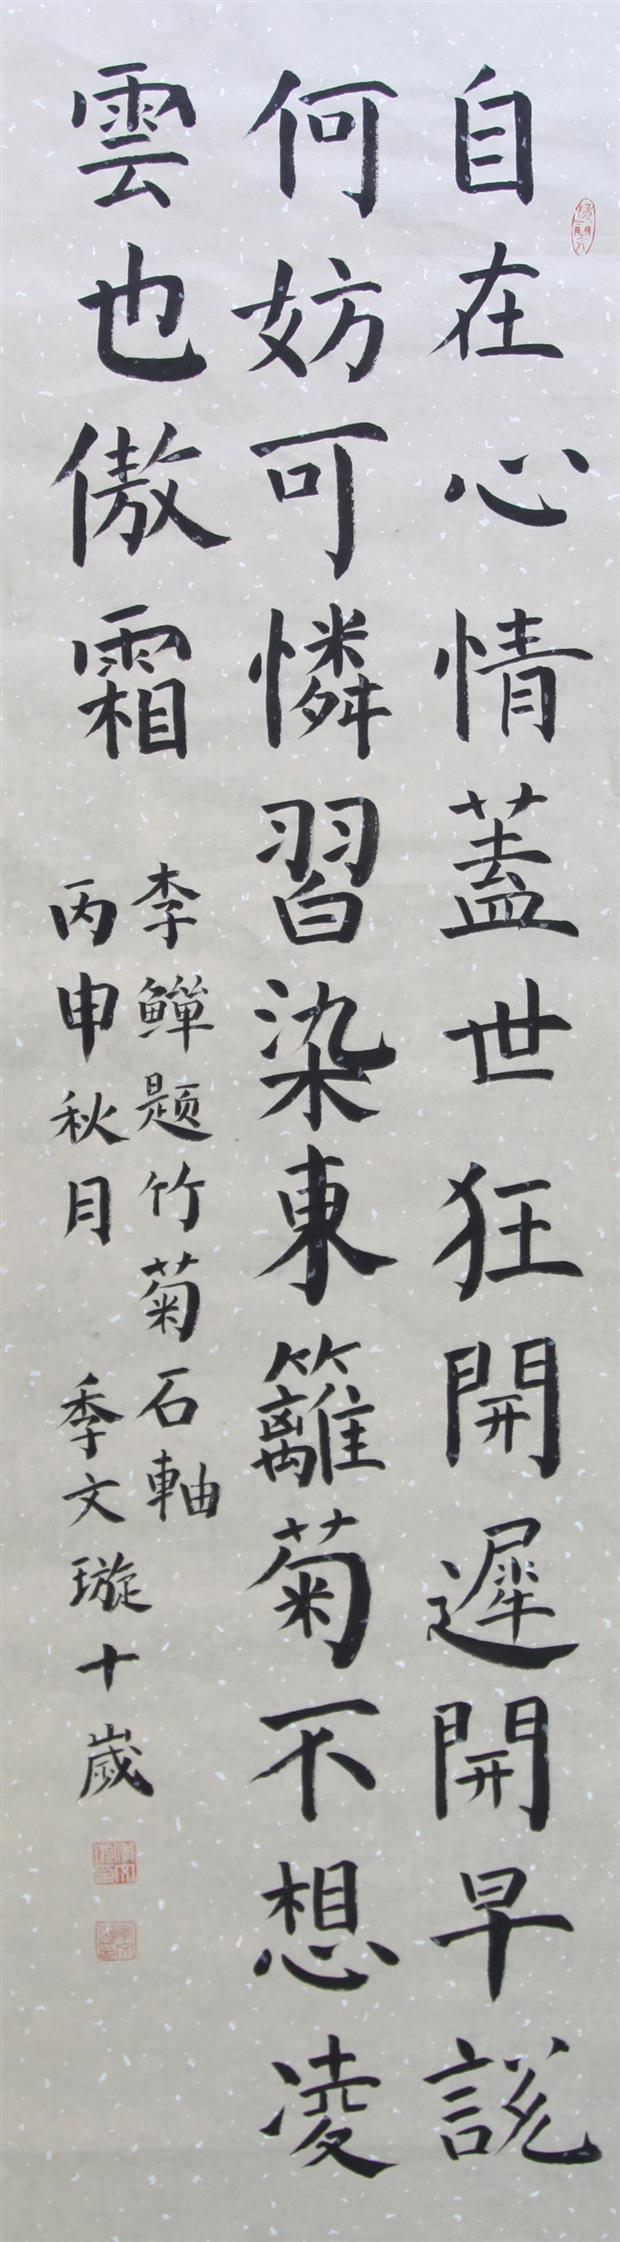 自在心情蓋世狂開遲開早説
何妨可憐習染東籬菊不想凌
雲也傲霜
李鱓題竹菊石軸
丙申秋月 季文璇十歲